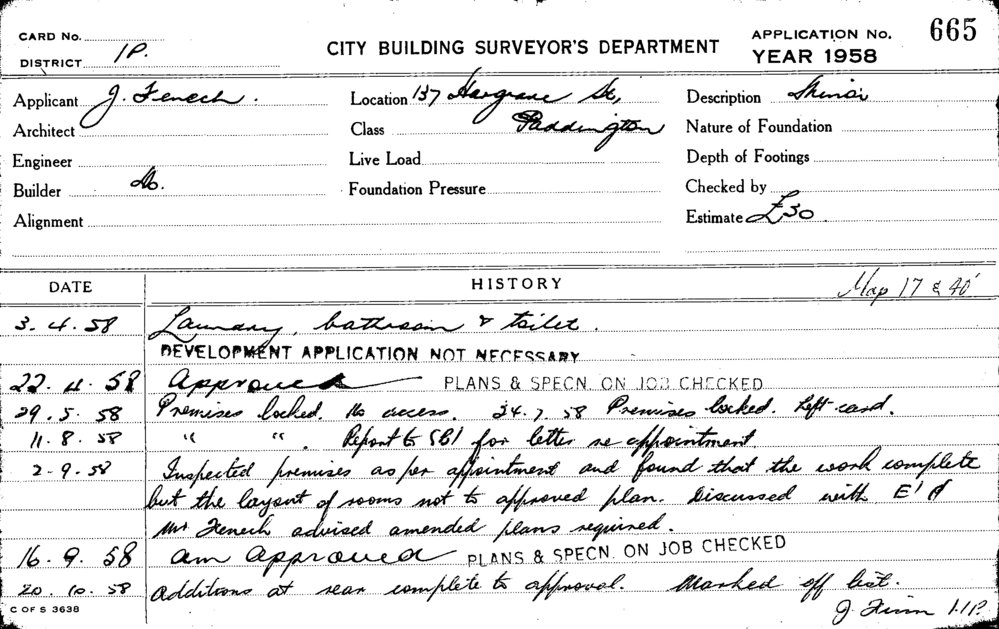 CARD No.
DISTRICT 1P.
CITY BUILDING SURVEYOR'S DEPARTMENT
APPLICATION No. 665
YEAR 1958
Applicant J. Fenech. Location 137 Hargrave St, Description Minor
Architect Class Paddington Nature of Foundation
Engineer Live Load Depth of Footings
Builder do. Foundation Pressure Checked by
Alignment Estimate £30
DATE HISTORY Map 17 & 40'
3. 4. 58 Laundry, bathroom & toilet.
DEVELOPMENT APPLICATION NOT NECESSARY
22. 4. 58 Approved PLANS & SPECN. ON JOB CHECKED
29. 5. 58 Premises locked. No access. 24. 7. 58 Premises locked. Left card.
11. 8. 58 " " . Report to for letter re appointment
2-9. 58 Inspected premises as per appointment and found that the work complete
but the layout of rooms not to approved plan. Discussed with
Mr Fenech advised amended plans required.
16. 9. 58 am Approved PLANS & SPECN. ON JOB CHECKED
20. 10. 58 Additions at rear complete to approval. Marked off list.
C OF S 3638
J. 1.1P.